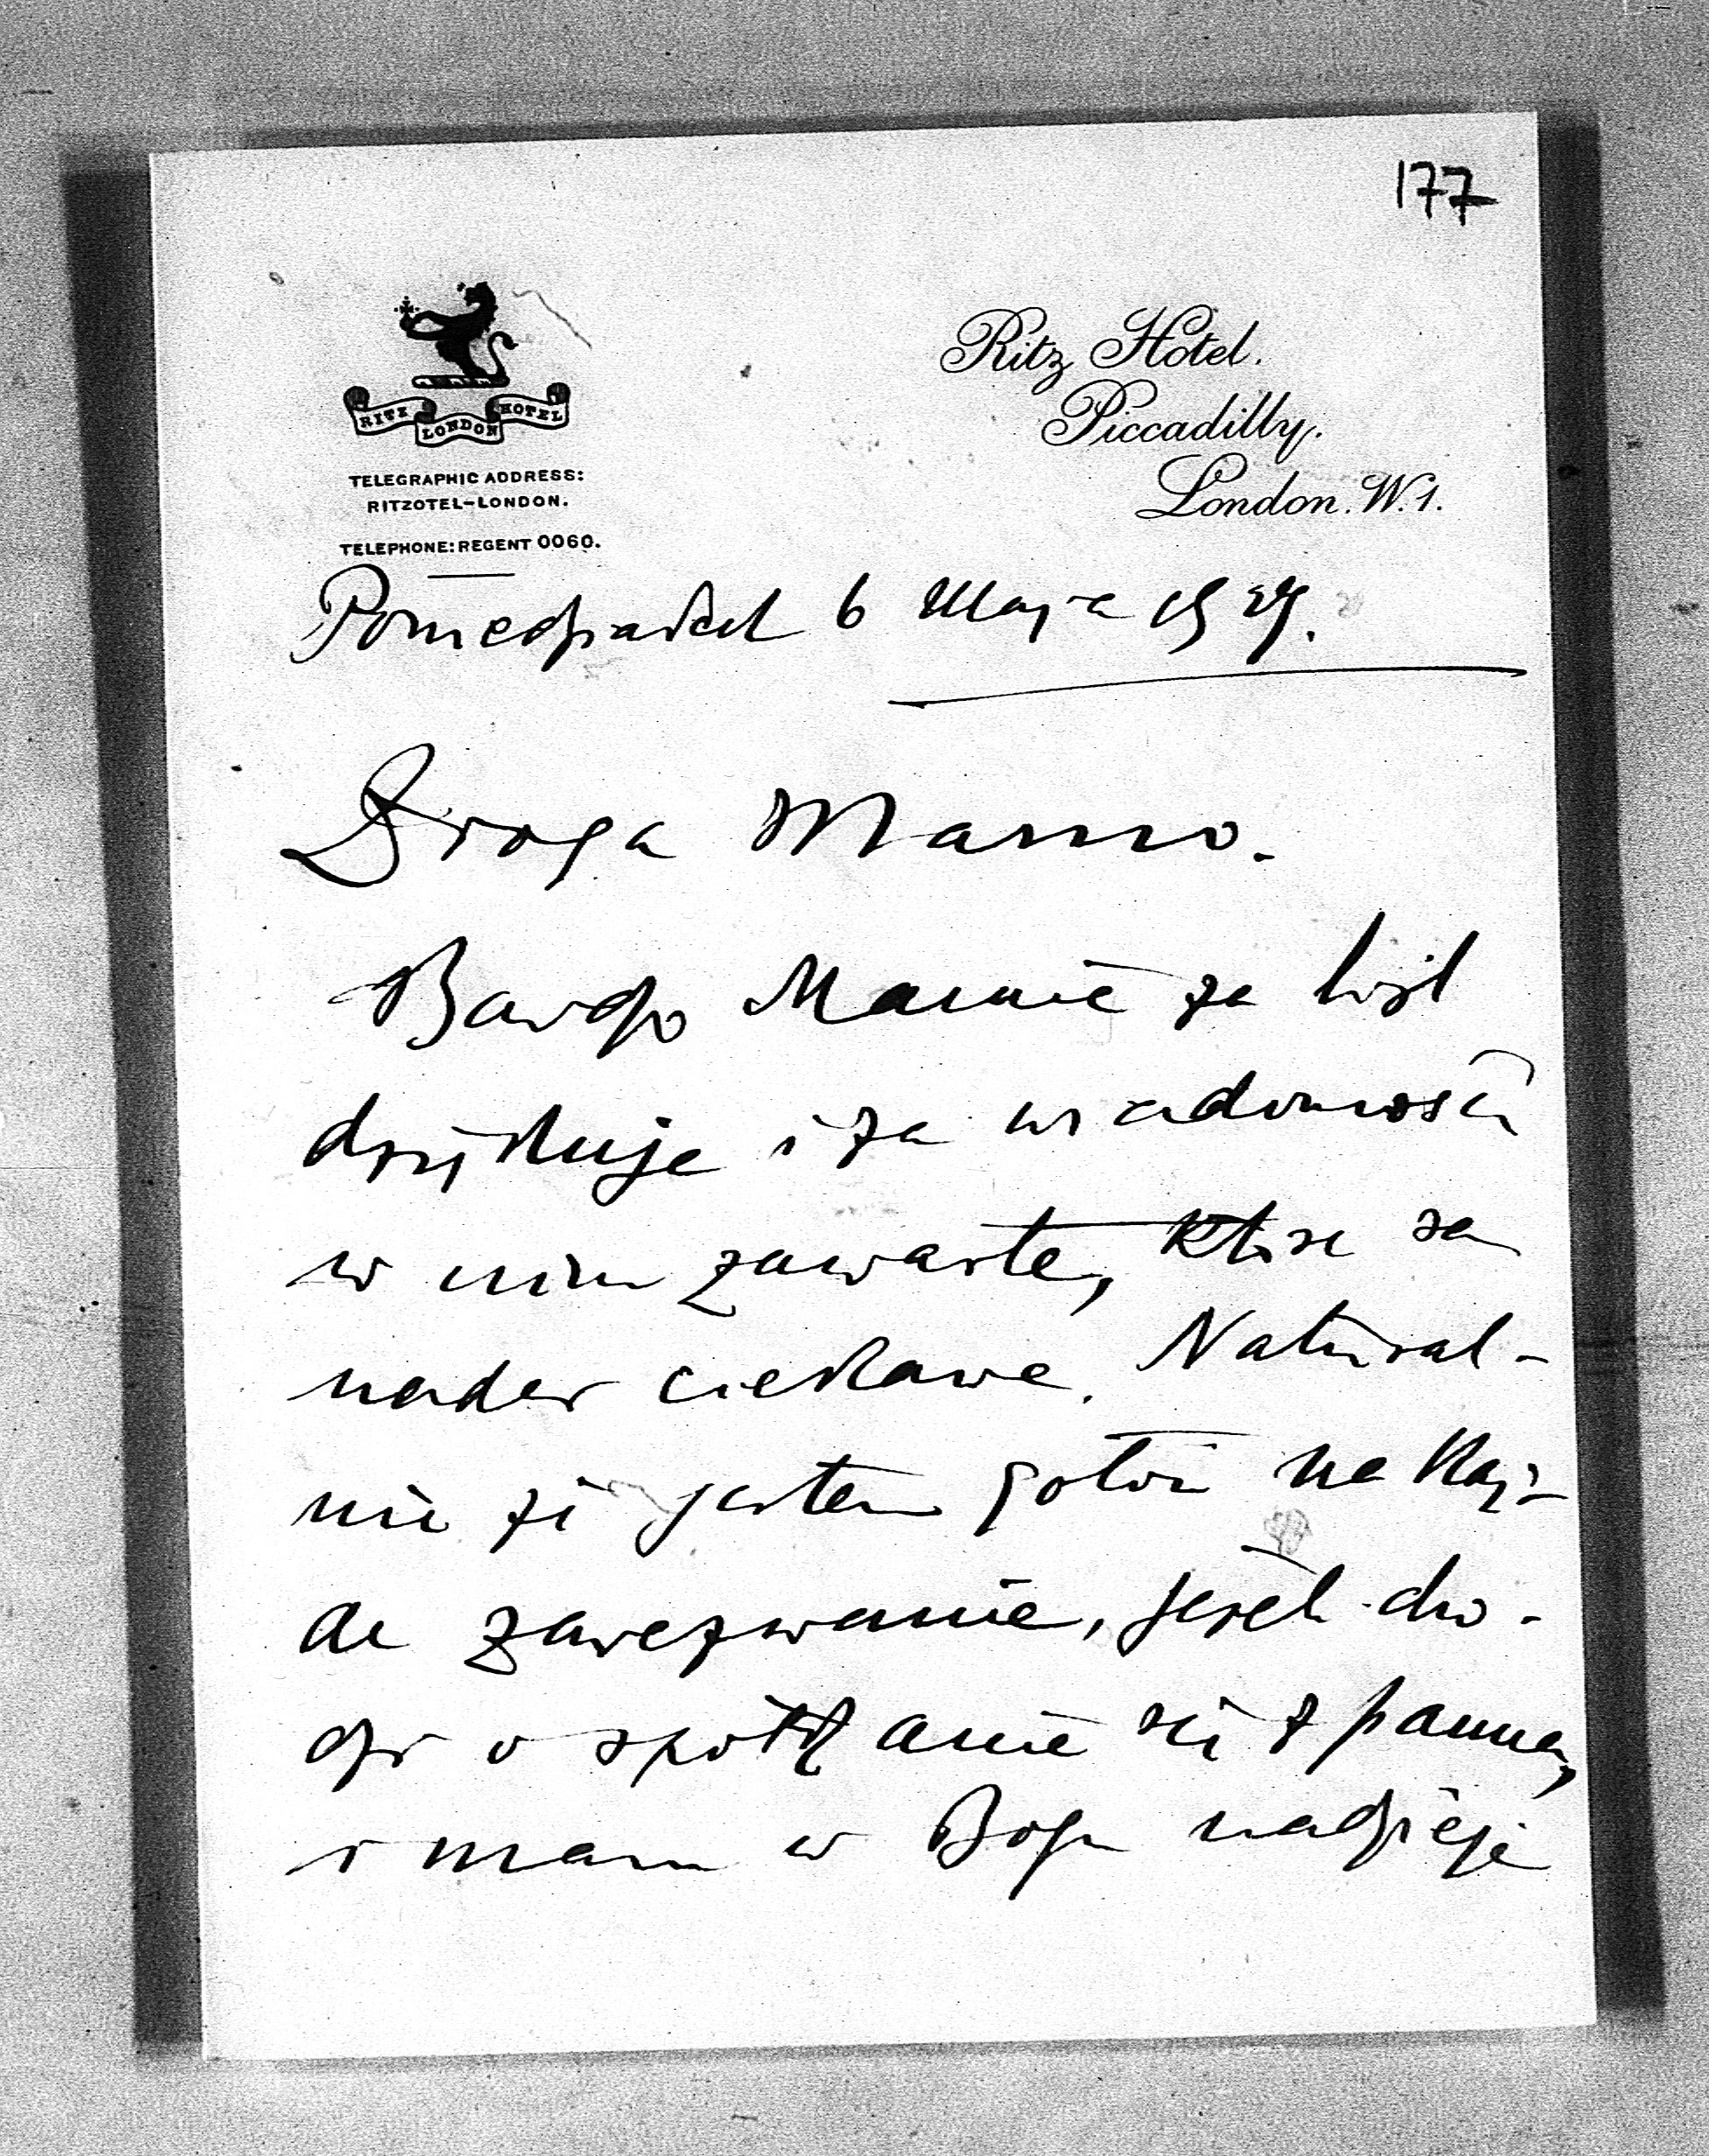 177
RITZ HOTEL
LONDON
TELEGRAPHIC ADDRESS:
RITZOTEL-LONDON.
TELEPHONE: REGENT 0060.
Ritz Hotel.
Piccadilly.
London. W.1.
Poniedziałek 6 Maja 1929.
Droga Mamo.
Bardzo Mamie za list
dziękuję i za wiadomości
w nim zawarte, które są
nader ciekawe. Natural-
nie że jestem gotów na każ-
de zawezwanie, jeżeli cho-
dzi o spotkanie się z panną,
i mam w Bogu nadzieję